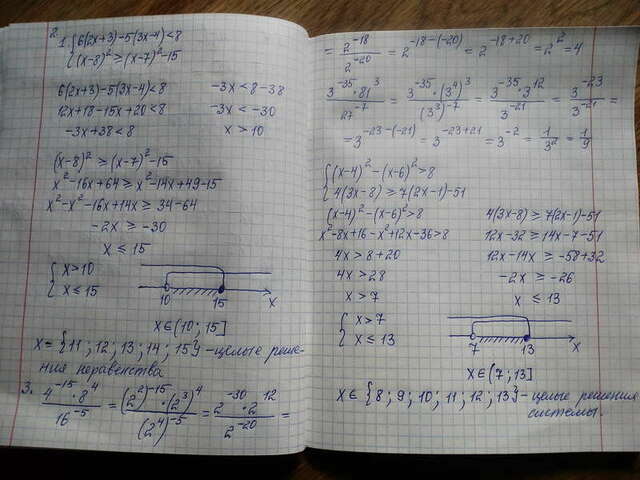 2.
1. { 6(2x+3)-5(3x-4)<8
(x-8)² ≥ (x-7)²-15
6(2x+3)-5(3x-4)<8
12x+18-15x+20<8
-3x+38<8
-3x<8-38
-3x<-30
x>10
(x-8)² ≥ (x-7)²-15
x²-16x+64 ≥ x²-14x+49-15
x²-x²-16x+14x ≥ 34-64
-2x ≥ -30
x ≤ 15
{ x>10
x ≤ 15
10 15 x
x∈(10; 15]
x={11; 12; 13; 14; 15} - целые реше-
ния неравенства
3. 4⁻¹⁵·8⁴/16⁻⁵ = (2²)⁻¹⁵·(2³)⁴/(2⁴)⁻⁵ = 2⁻³⁰·2¹²/2⁻²⁰ =
= 2⁻¹⁸/2⁻²⁰ = 2⁻¹⁸⁻⁽⁻²⁰⁾ = 2⁻¹⁸⁺²⁰ = 2² = 4
3⁻³⁵·81³/27⁻⁷ = 3⁻³⁵·(3⁴)³/(3³)⁻⁷ = 3⁻³⁵·3¹²/3⁻²¹ = 3⁻²³/3⁻²¹ =
= 3⁻²³⁻⁽⁻²¹⁾ = 3⁻²³⁺²¹ = 3⁻² = 1/3² = 1/9
{ (x-4)²-(x-6)²>8
4(3x-8) ≥ 7(2x-1)-51
(x-4)²-(x-6)²>8
x²-8x+16-x²+12x-36>8
4x>8+20
4x>28
x>7
4(3x-8) ≥ 7(2x-1)-51
12x-32 ≥ 14x-7-51
12x-14x ≥ -58+32
-2x ≥ -26
x ≤ 13
{ x>7
x ≤ 13
7 13 x
x∈(7; 13]
x∈{8; 9; 10; 11; 12; 13} - целые решения
системы.